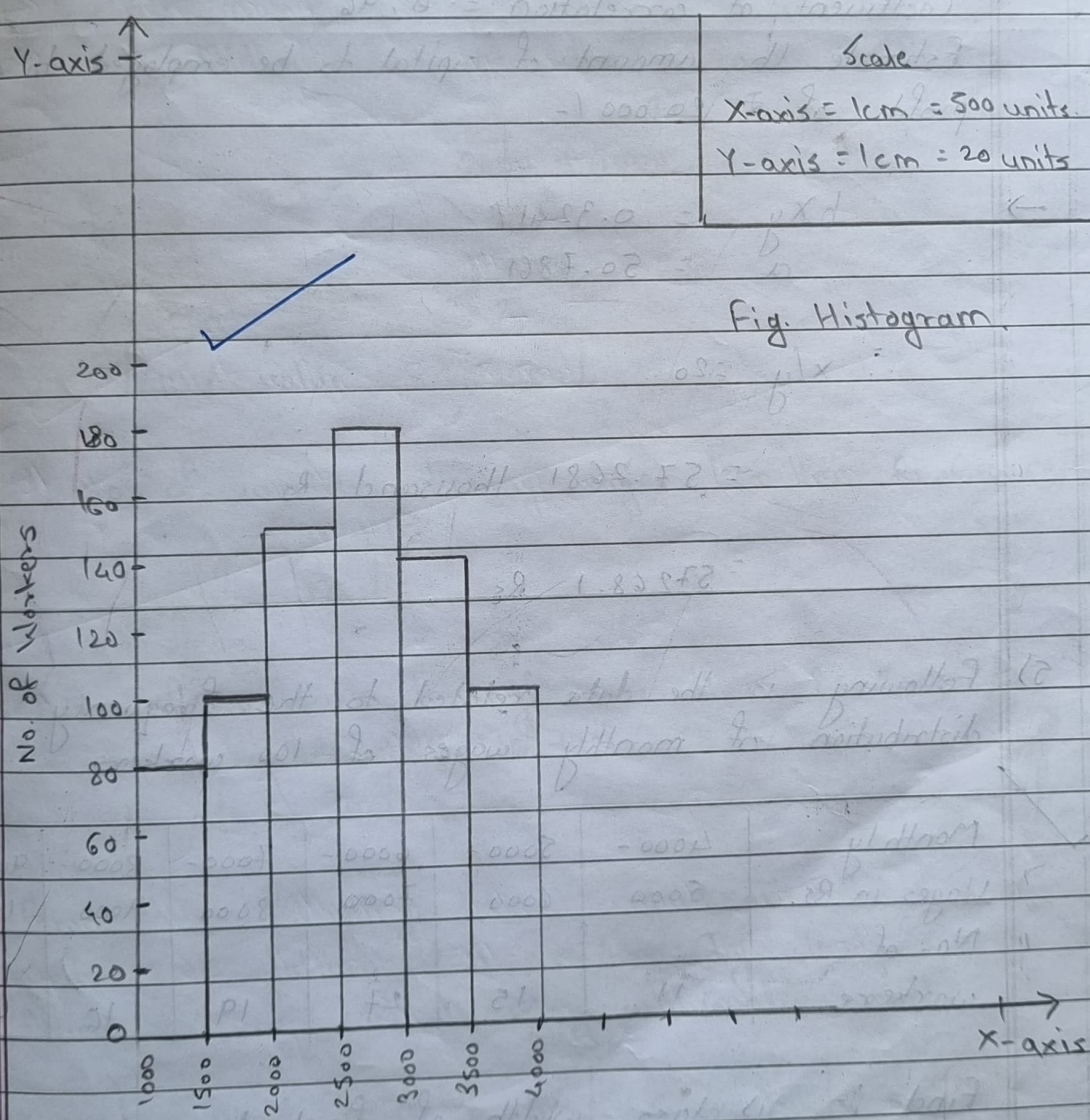 Y-axis
Scale
X-axis = 1cm = 500 units.
Y-axis = 1cm = 20 units
Fig. Histogram.
200
180
160
140
120
100
80
60
40
20
0
No. of Workers
1000
1500
2000
2500
3000
3500
4000
X-axis